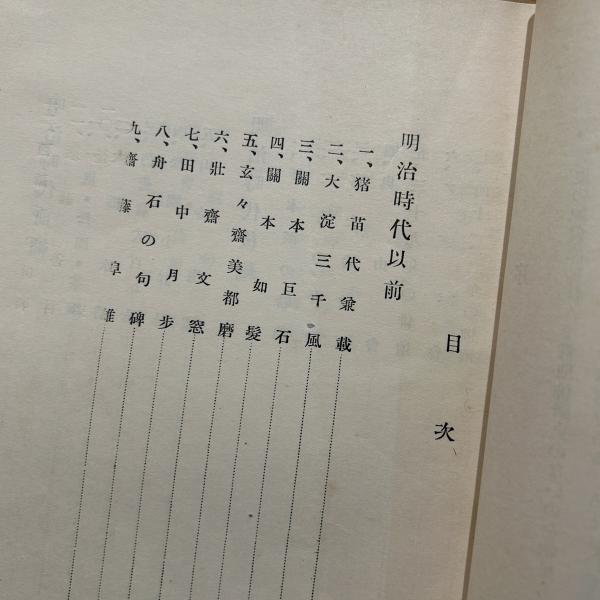 目次
明治時代以前
一、猪苗代兼載
二、大淀三千風
三、關本巨石
四、關本如髮
五、玄々齋美都磨
六、壯齋文窓
七、田中月步
八、舟石の句碑
九、齋藤皐雄